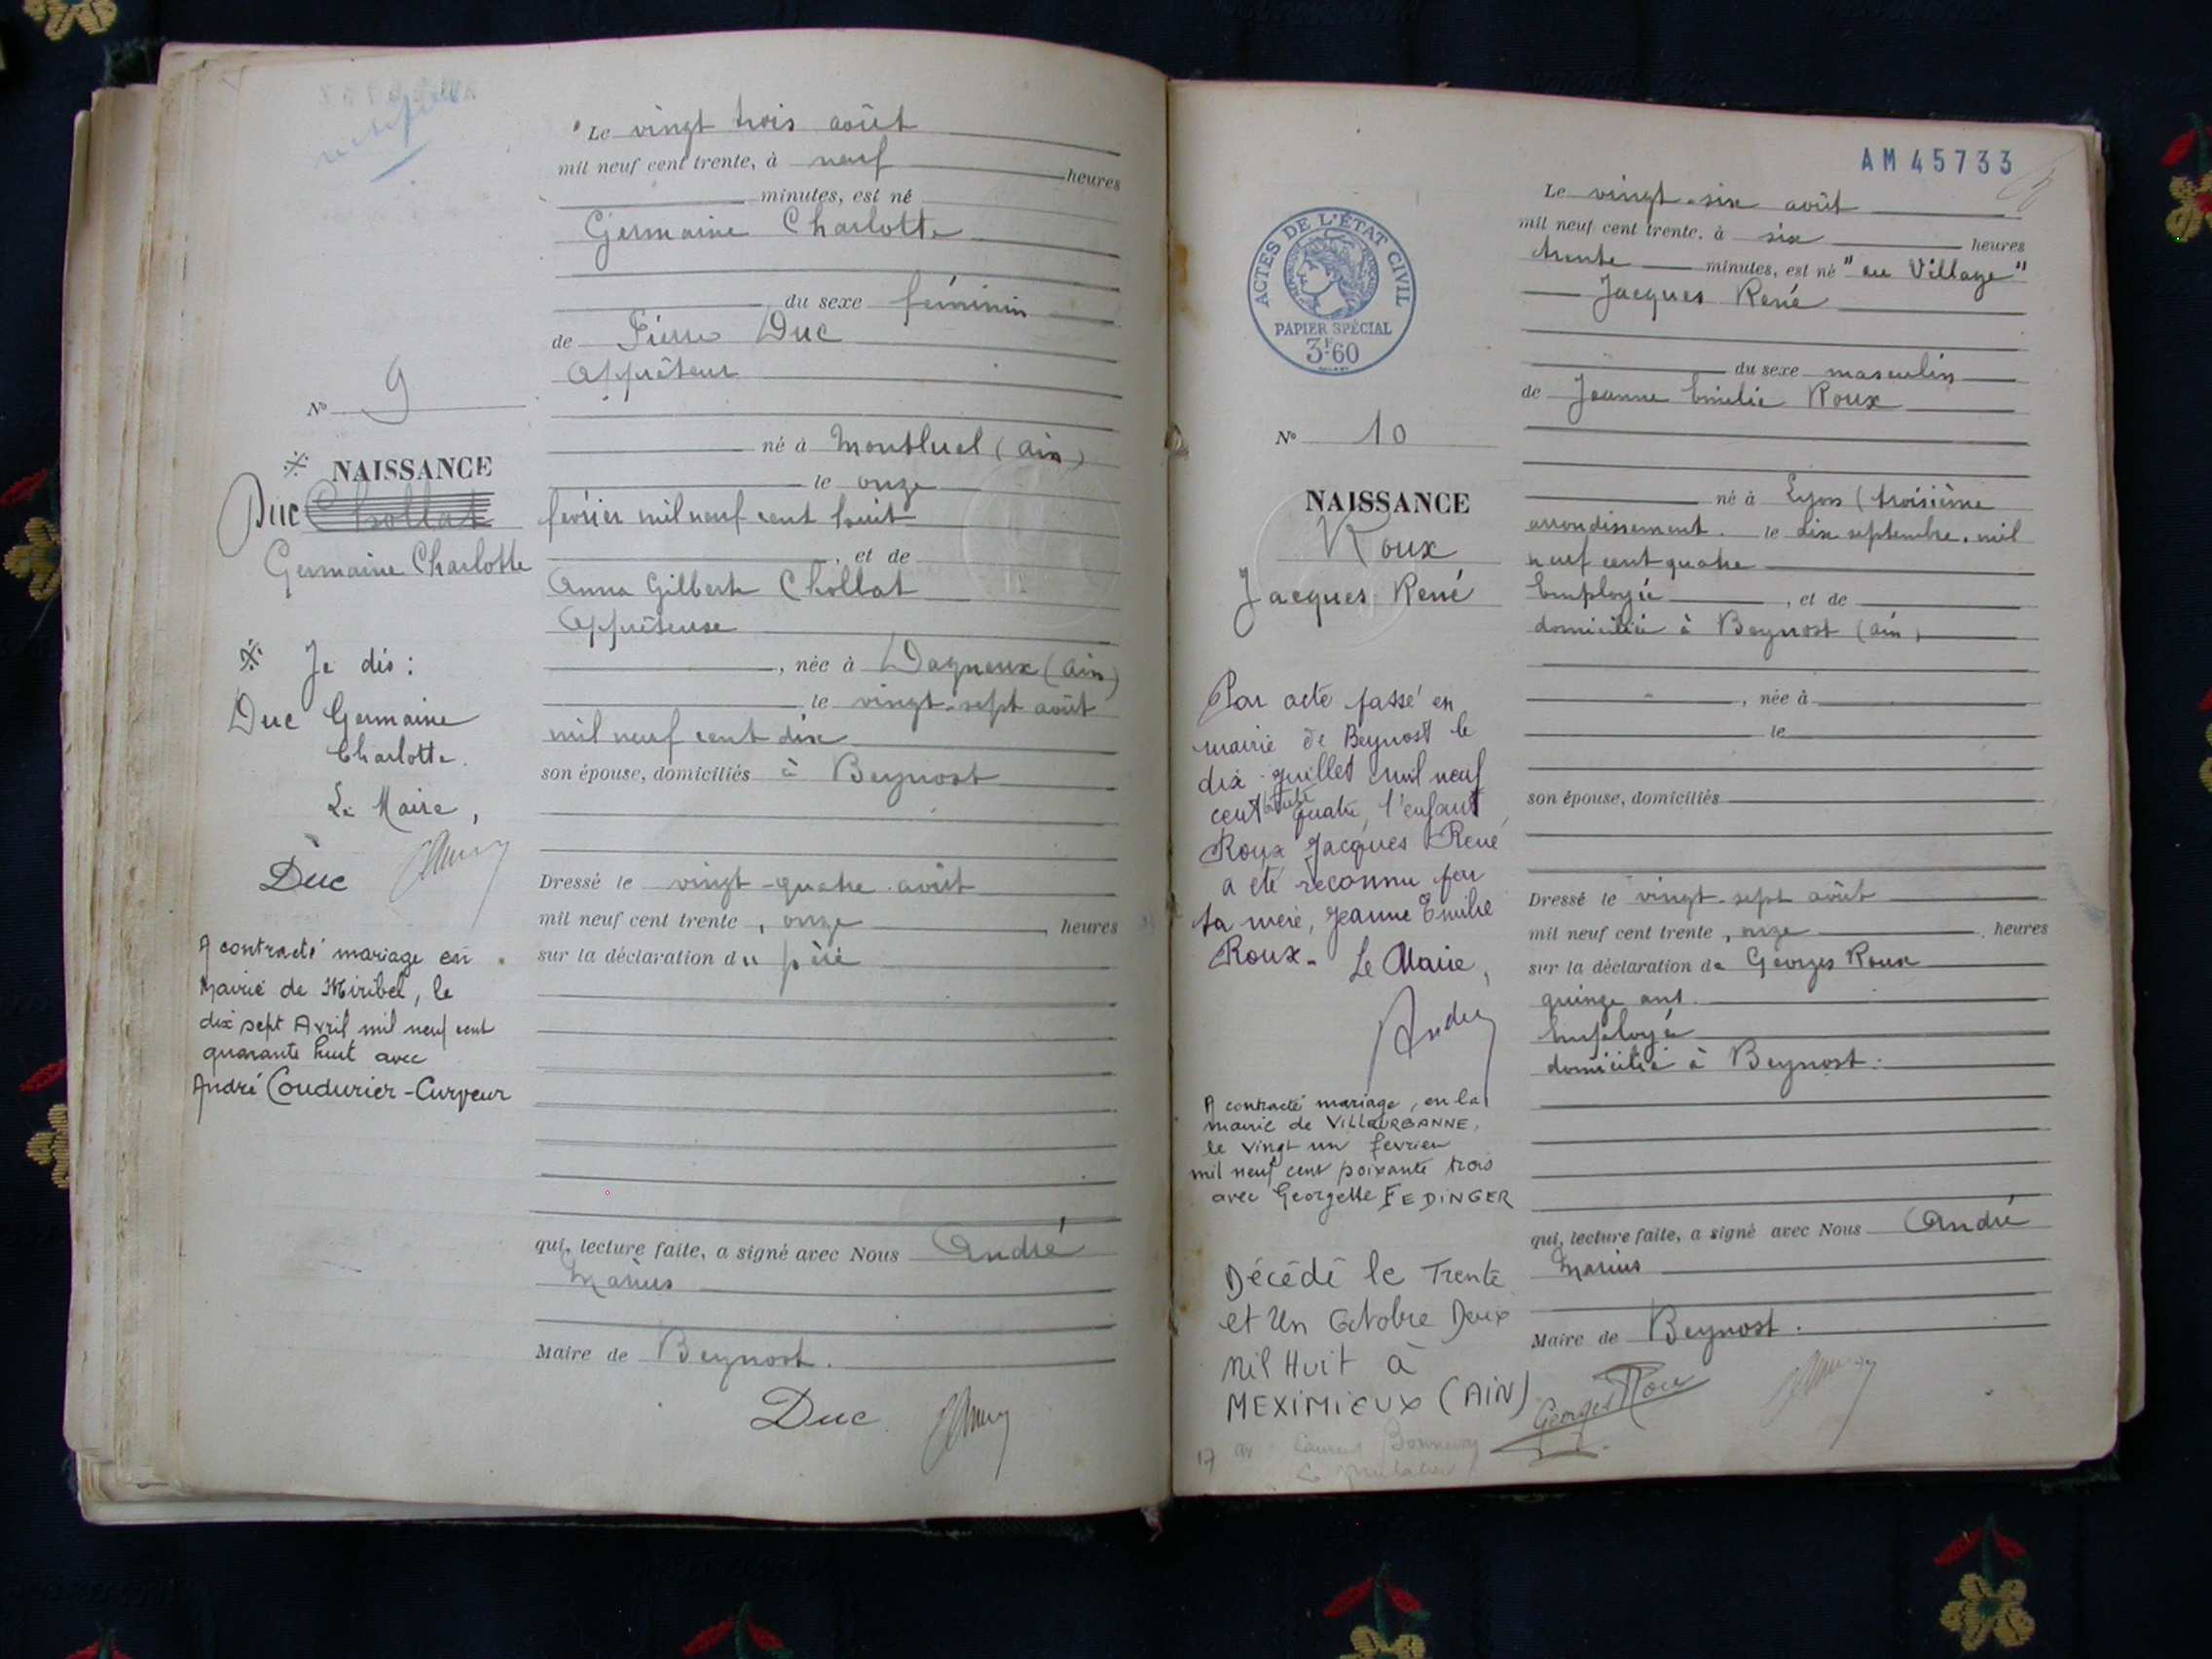 N° 9
NAISSANCE
Duc Chollat
Germaine Charlotte
Je dis :
Duc Germaine
Charlotte.
Le Maire,
Duc
A contracté mariage en
Mairie de Miribel, le
dix sept Avril mil neuf cent
quarante huit avec
André Coudurier-Curveur
Le vingt trois août
mil neuf cent trente, à neuf heures
minutes, est né
Germaine Charlotte
du sexe féminin
de Pierre Duc
Apprêteur
né à Montluel (Ain)
le onze
février mil neuf cent huit
, et de
Anna Gilberte Chollat
Apprêteuse
, née à Dagneux (Ain)
le vingt-sept août
mil neuf cent dix
son épouse, domiciliés à Beynost
Dressé le vingt-quatre août
mil neuf cent trente, onze heures
sur la déclaration du père
qui, lecture faite, a signé avec Nous André
Marius
Maire de Beynost.
Duc
AM 45733
ACTES DE L'ÉTAT CIVIL
PAPIER SPÉCIAL
3F60
N° 10
NAISSANCE
Roux
Jacques René
Par acte passé en
mairie de Beynost le
dix juillet mil neuf
cent trente quatre, l'enfant
Roux Jacques René
a été reconnu par
sa mère, Jeanne Emilie
Roux. Le Maire,
André
A contracté mariage, en la
mairie de VILLEURBANNE,
le vingt un février
mil neuf cent soixante trois
avec Georgette FEDINGER
Décédé le Trente
et Un Octobre Deux
Mil Huit à
MEXIMIEUX (AIN)
Le vingt-six août
mil neuf cent trente, à six heures
trente minutes, est né "au Village"
Jacques René
du sexe masculin
de Jeanne Emilie Roux
né à Lyon (troisième
arrondissement. le dix septembre, mil
neuf cent quatre
Employée , et de
domiciliée à Beynost (Ain)
, née à
le
son épouse, domiciliés
Dressé le vingt-sept août
mil neuf cent trente, onze heures
sur la déclaration de Georges Roux
quinze ans.
Employé
domicilié à Beynost.
qui, lecture faite, a signé avec Nous André
Marius
Maire de Beynost.
Georges Roux